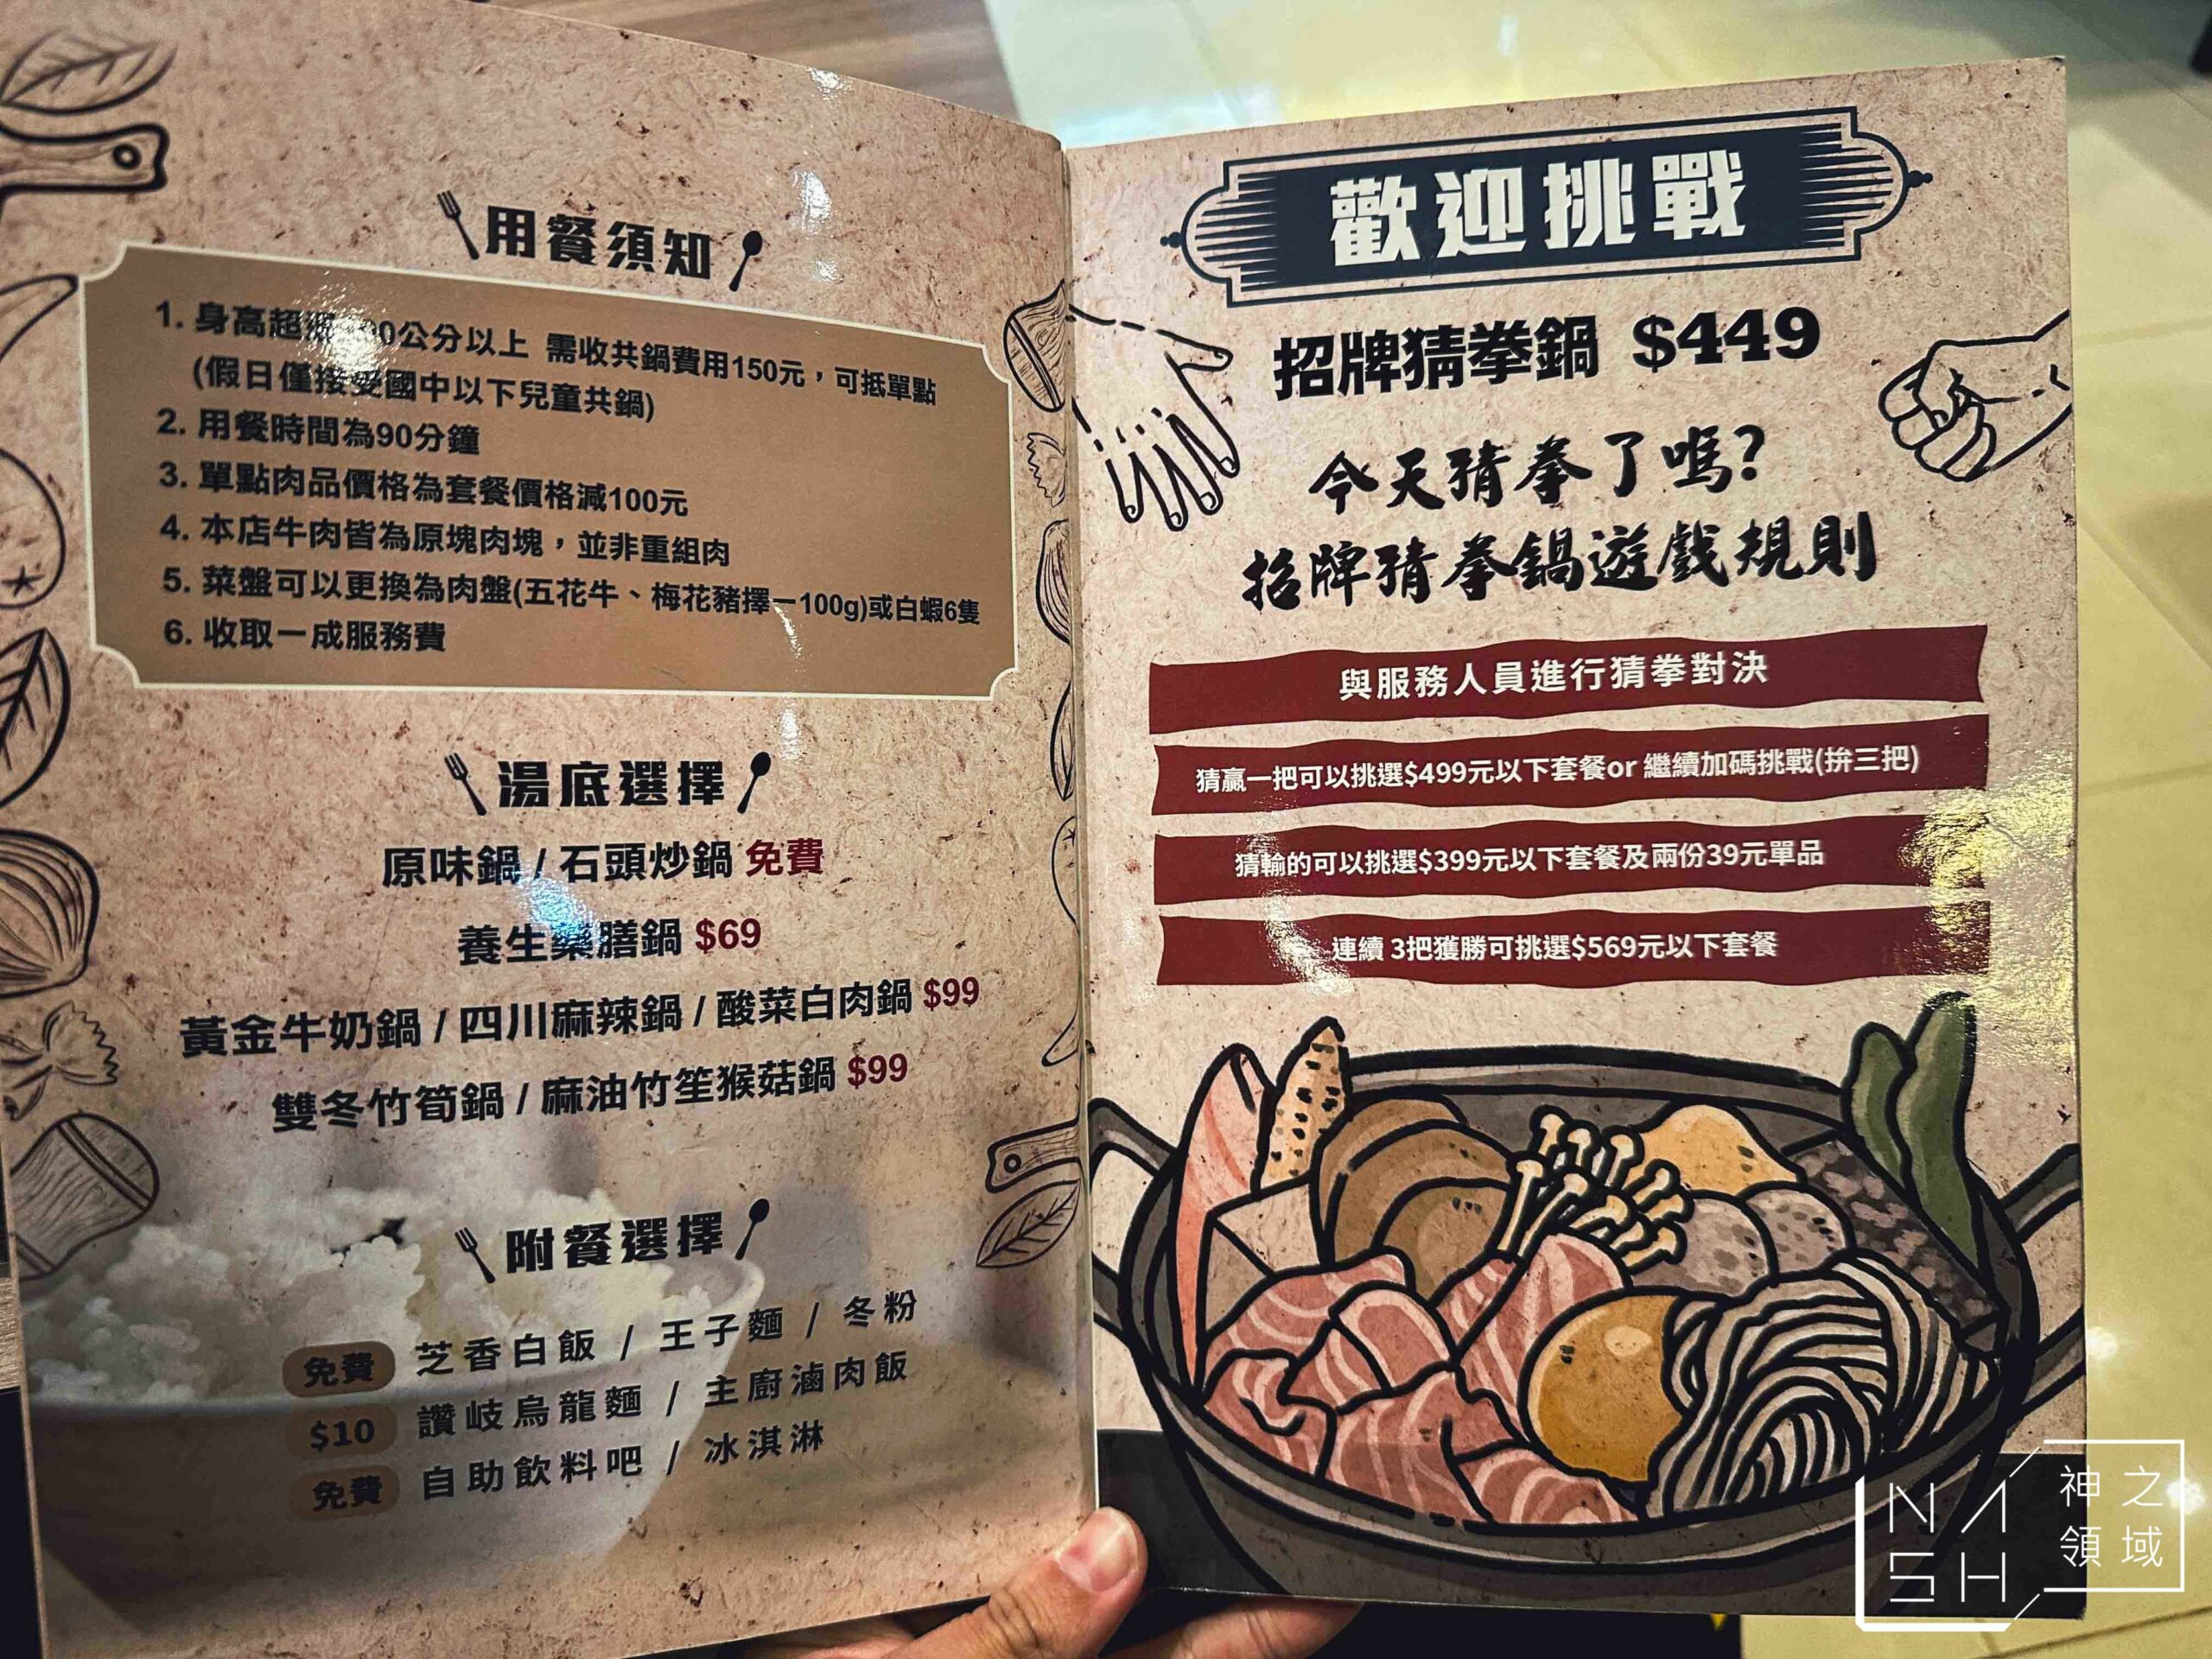 用餐須知
1. 身高超過 00公分以上 需收共鍋費用150元，可抵單點
(假日僅接受國中以下兒童共鍋)
2. 用餐時間為90分鐘
3. 單點肉品價格為套餐價格減100元
4. 本店牛肉皆為原塊肉塊，並非重組肉
5. 菜盤可以更換為肉盤(五花牛、梅花豬擇一100g)或白蝦6隻
6. 收取一成服務費
湯底選擇
原味鍋 / 石頭炒鍋 免費
養生藥膳鍋 $69
黃金牛奶鍋 / 四川麻辣鍋 / 酸菜白肉鍋 $99
雙冬竹筍鍋 / 麻油竹笙猴菇鍋 $99
附餐選擇
免費 芝香白飯 / 王子麵 / 冬粉
$10 讚岐烏龍麵 / 主廚滷肉飯
免費 自助飲料吧 / 冰淇淋
歡迎挑戰
招牌猜拳鍋 $449
今天猜拳了嗎?
招牌猜拳鍋遊戲規則
與服務人員進行猜拳對決
猜贏一把可以挑選$499元以下套餐or 繼續加碼挑戰(拚三把)
猜輸的可以挑選$399元以下套餐及兩份39元單品
連續 3把獲勝可挑選$569元以下套餐
NASH
神之領域